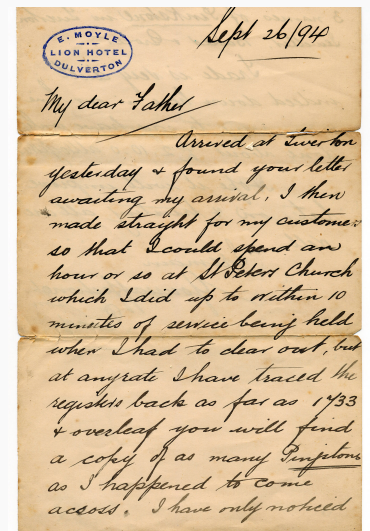 E. MOYLE
LION HOTEL
DULVERTON
Sept 26/94
My dear Father
Arrived at Tiverton
yesterday & found your letter
awaiting my arrival, I then
made straight for my customers
so that I could spend an
hour or so at St Peters Church
which I did up to within 10
minutes of service being held
when I had to clear out, but
at anyrate I have traced the
registers back as far as 1733
& overleaf you will find
a copy of as many
as I happened to come
across. I have only noticed